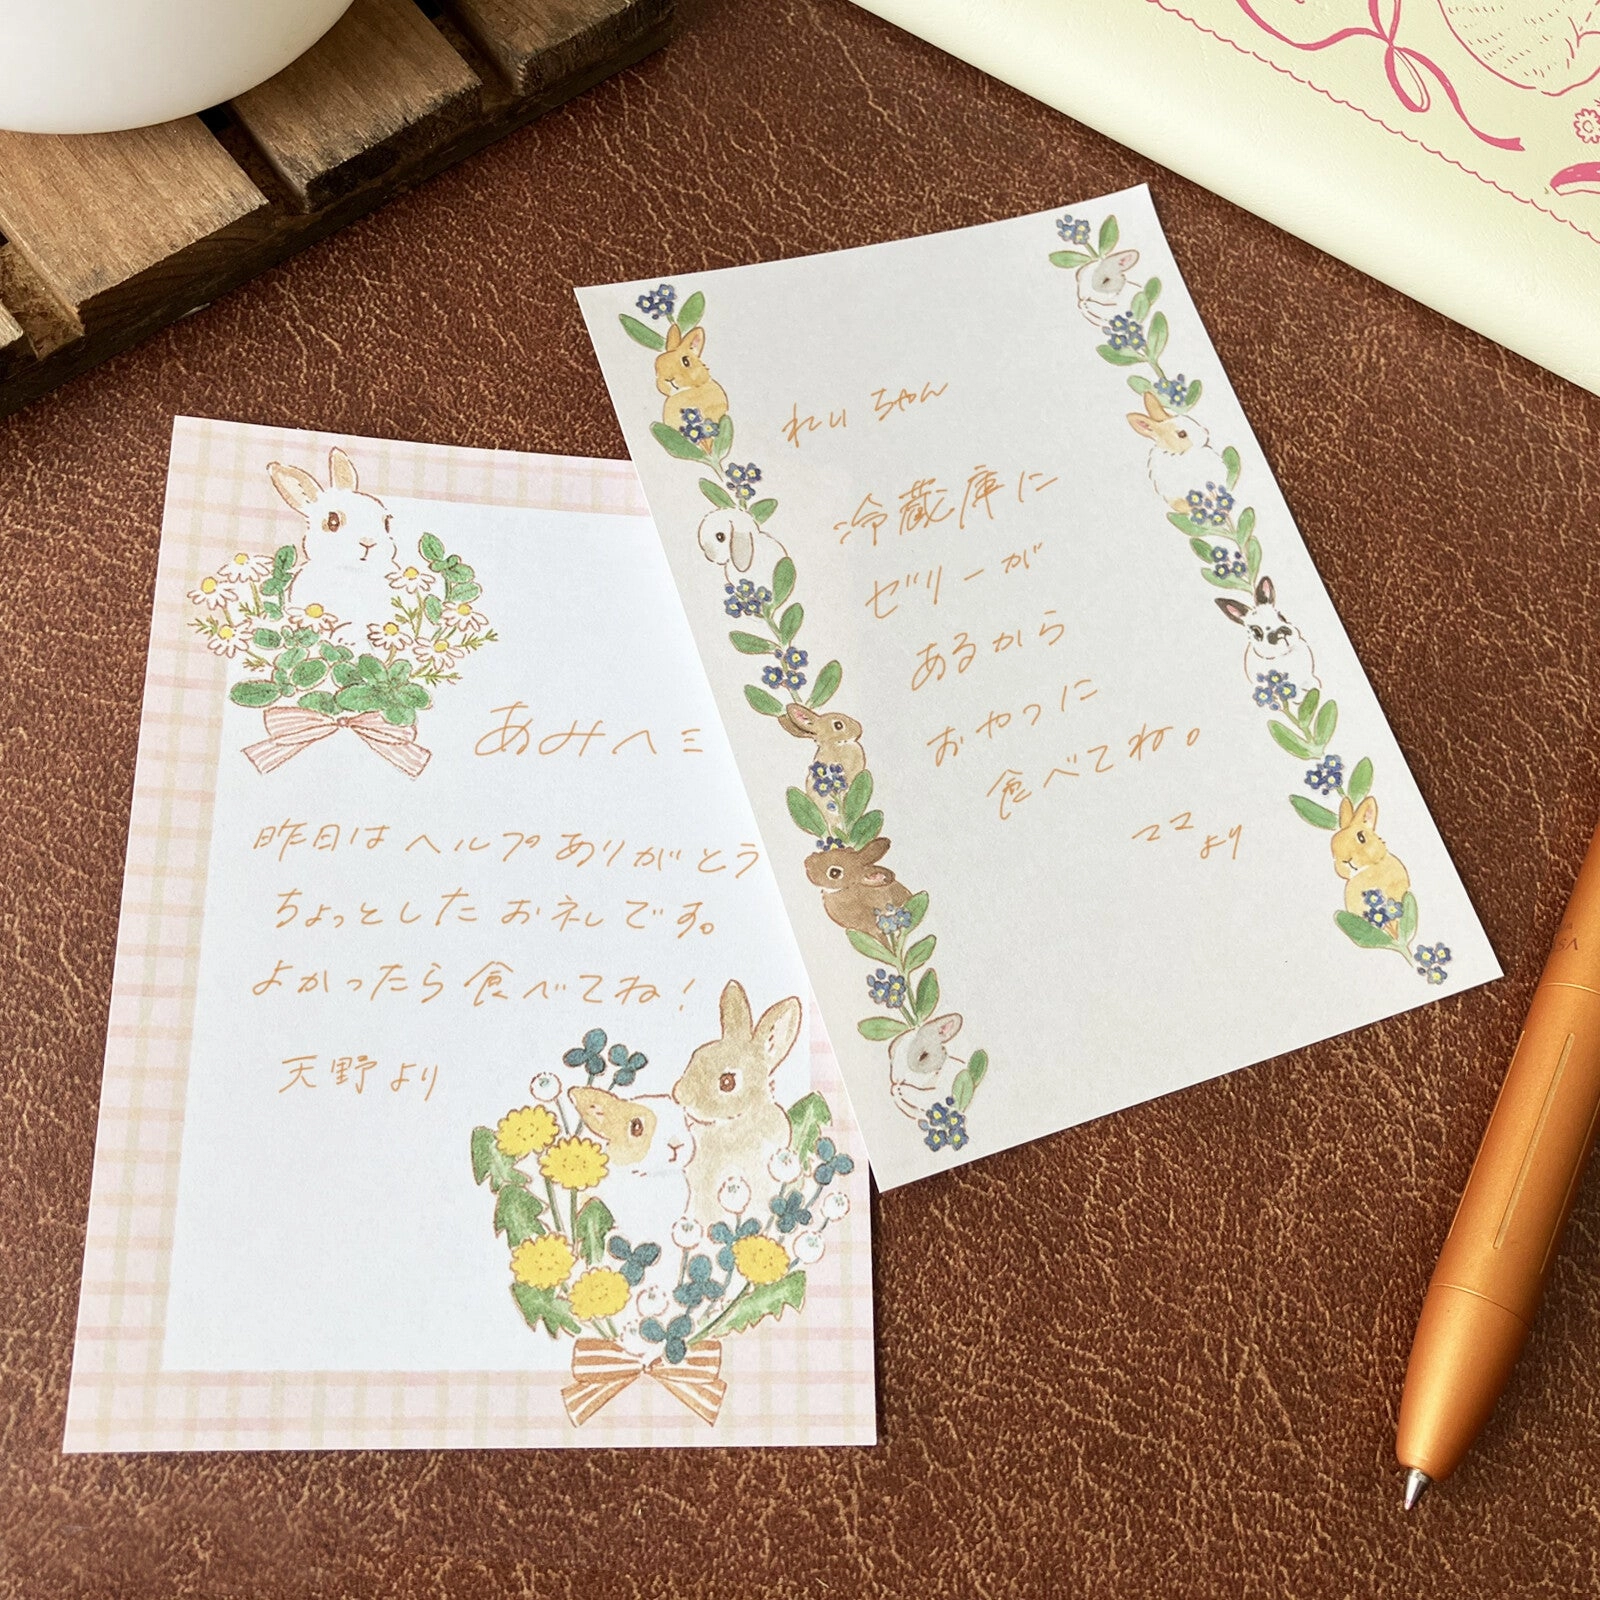 あみへ ミ
昨日は ヘルプ ありがとう
ちょっとした お礼です。
よかったら 食べてね！
天野より
れい ちゃん
冷蔵庫に
ゼリーが
あるから
おやつに
食べてね。
ママ
より